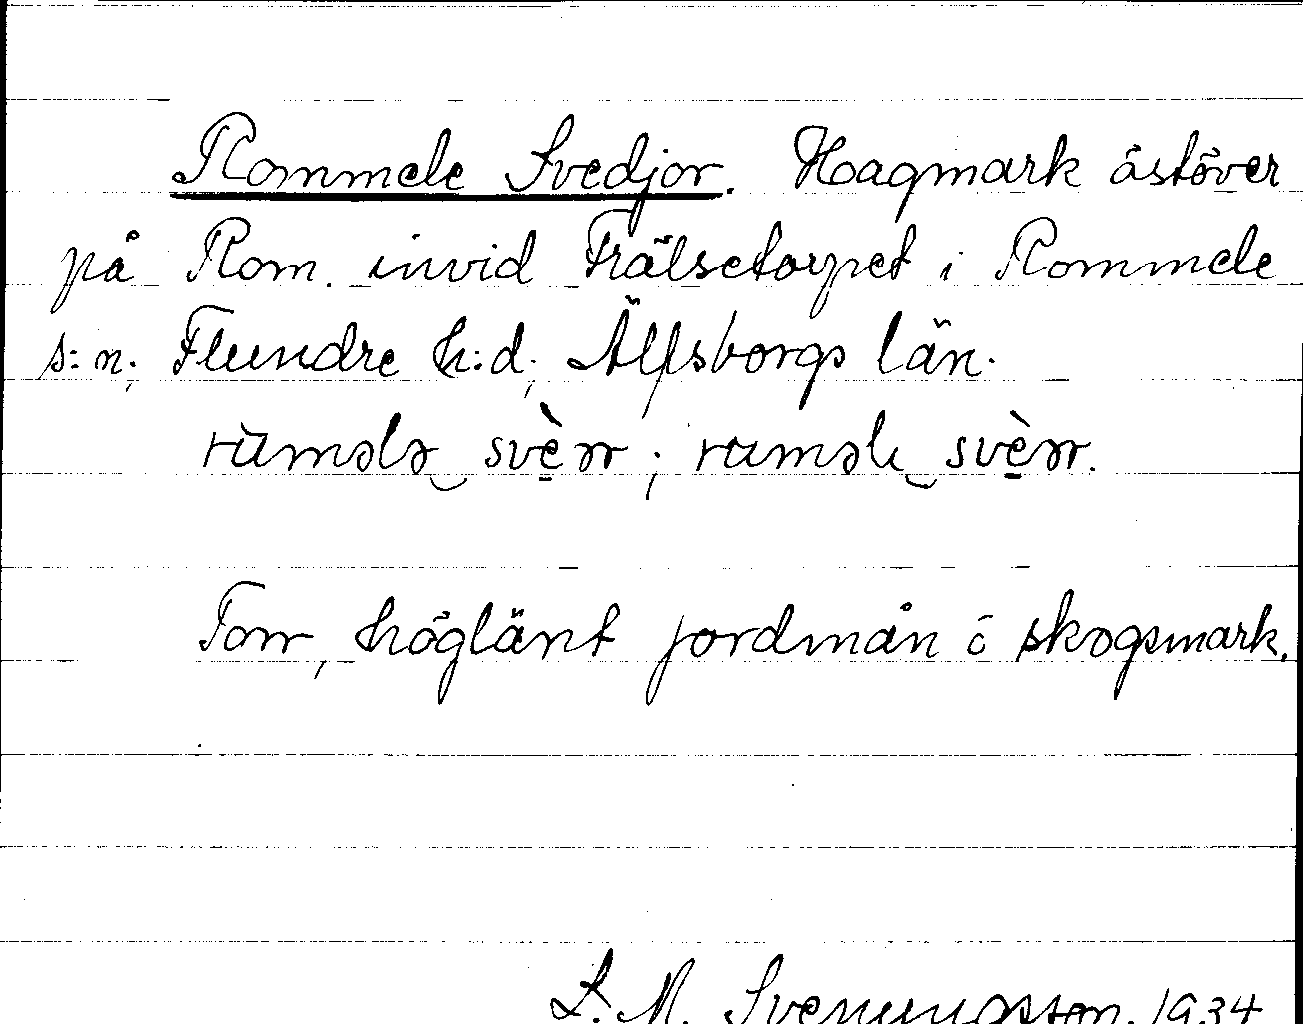 Rommele Svedjor. Hagmark åstöver
på Rom. invid Frälsetorpet i Rommele
s:n; Flundre h:d; Älfsborgs län.
rùmələ svèər; ruməlɩ svèər.
Torr, höglänt jordmån i skogsmark.
S. M. Svenungsson. 1934